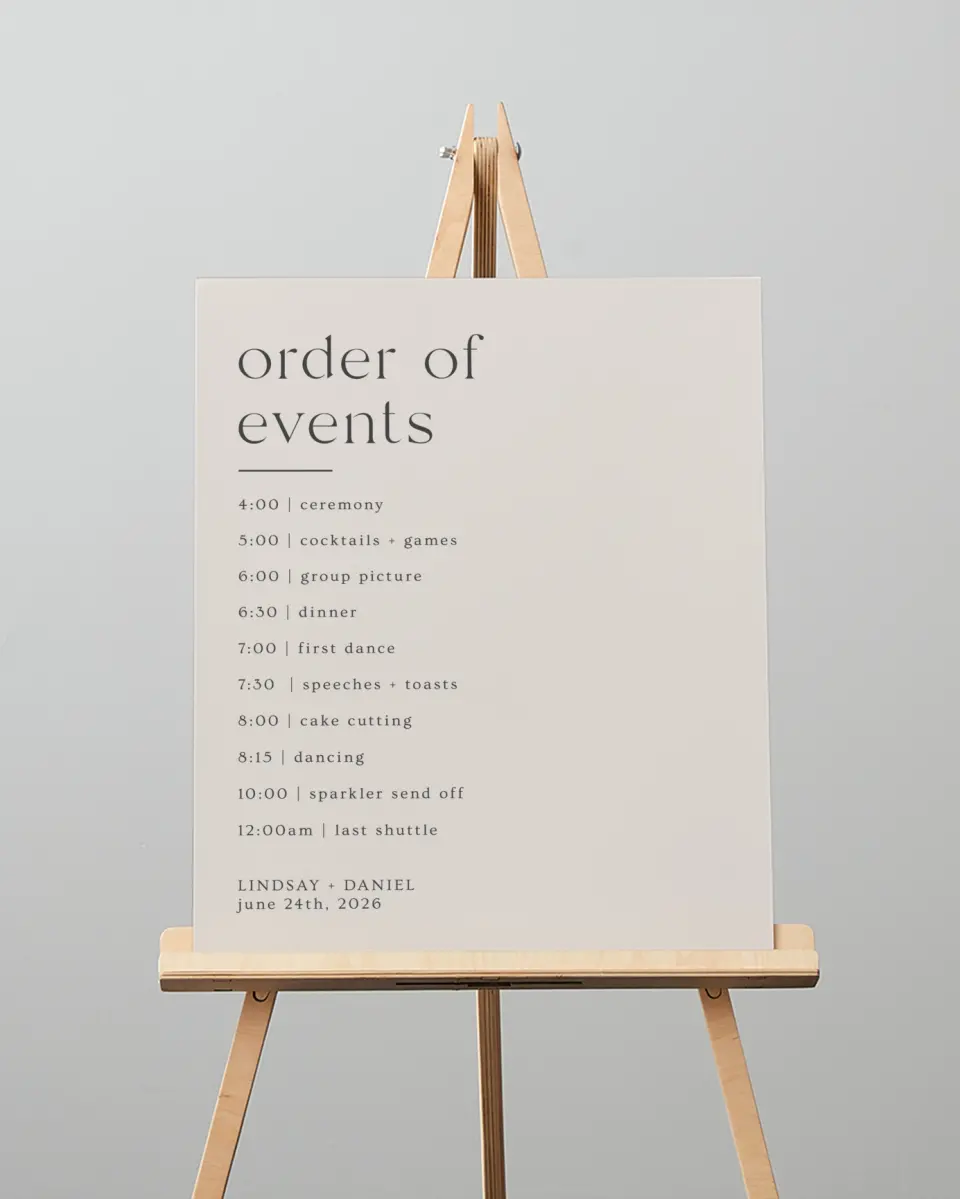 order of
events
4:00 | ceremony
5:00 | cocktails + games
6:00 | group picture
6:30 | dinner
7:00 | first dance
7:30 | speeches + toasts
8:00 | cake cutting
8:15 | dancing
10:00 | sparkler send off
12:00am | last shuttle
LINDSAY + DANIEL
june 24th, 2026